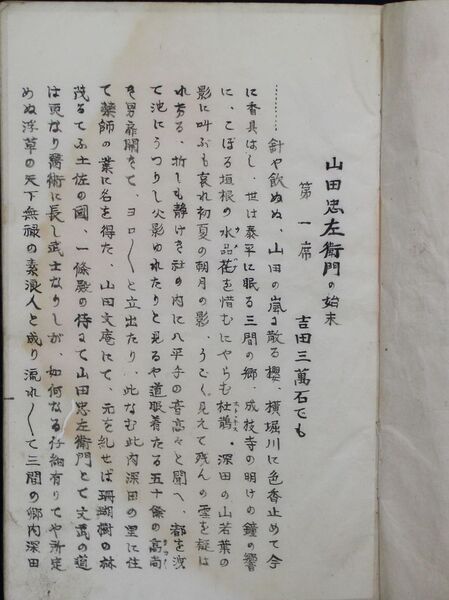 山田忠左衛門の始末
第一席　吉田三萬石でも
………針や飲ぬぬ、山田の嵐に散る櫻、横堀川に色香止めて今
に香具はし、世は泰平に眠る三間の郷、成枝寺の明けの鐘の響
に、こぼる垣根の水晶花を惜むにやらむ杜鵑、深田の山若葉の
影に叫ぶも哀れ初夏の朝月の影、うすく見えて残んの雪と疑は
れぬる、折しも静けき社の内に八平手の音高々と聞へ、都を流
て池にうつりし火影ゆれたりと見るや道服着たる五十餘の高尚
き男扉開きて、ヨロ〱と立出たり、此なむ此内深田の里に住
て薬師の業に名を得た、山田文庵にて、元を糺せば珊瑚樹の林
茂るてふ土佐の國、一條殿の侍にて山田忠左衛門とて文武の道
は更なり醫術に長し武士なりしが、如何なる仔細有りてや所定
めぬ浮草の天下無禄の素浪人と成り流れ〱て三間の郷内深田